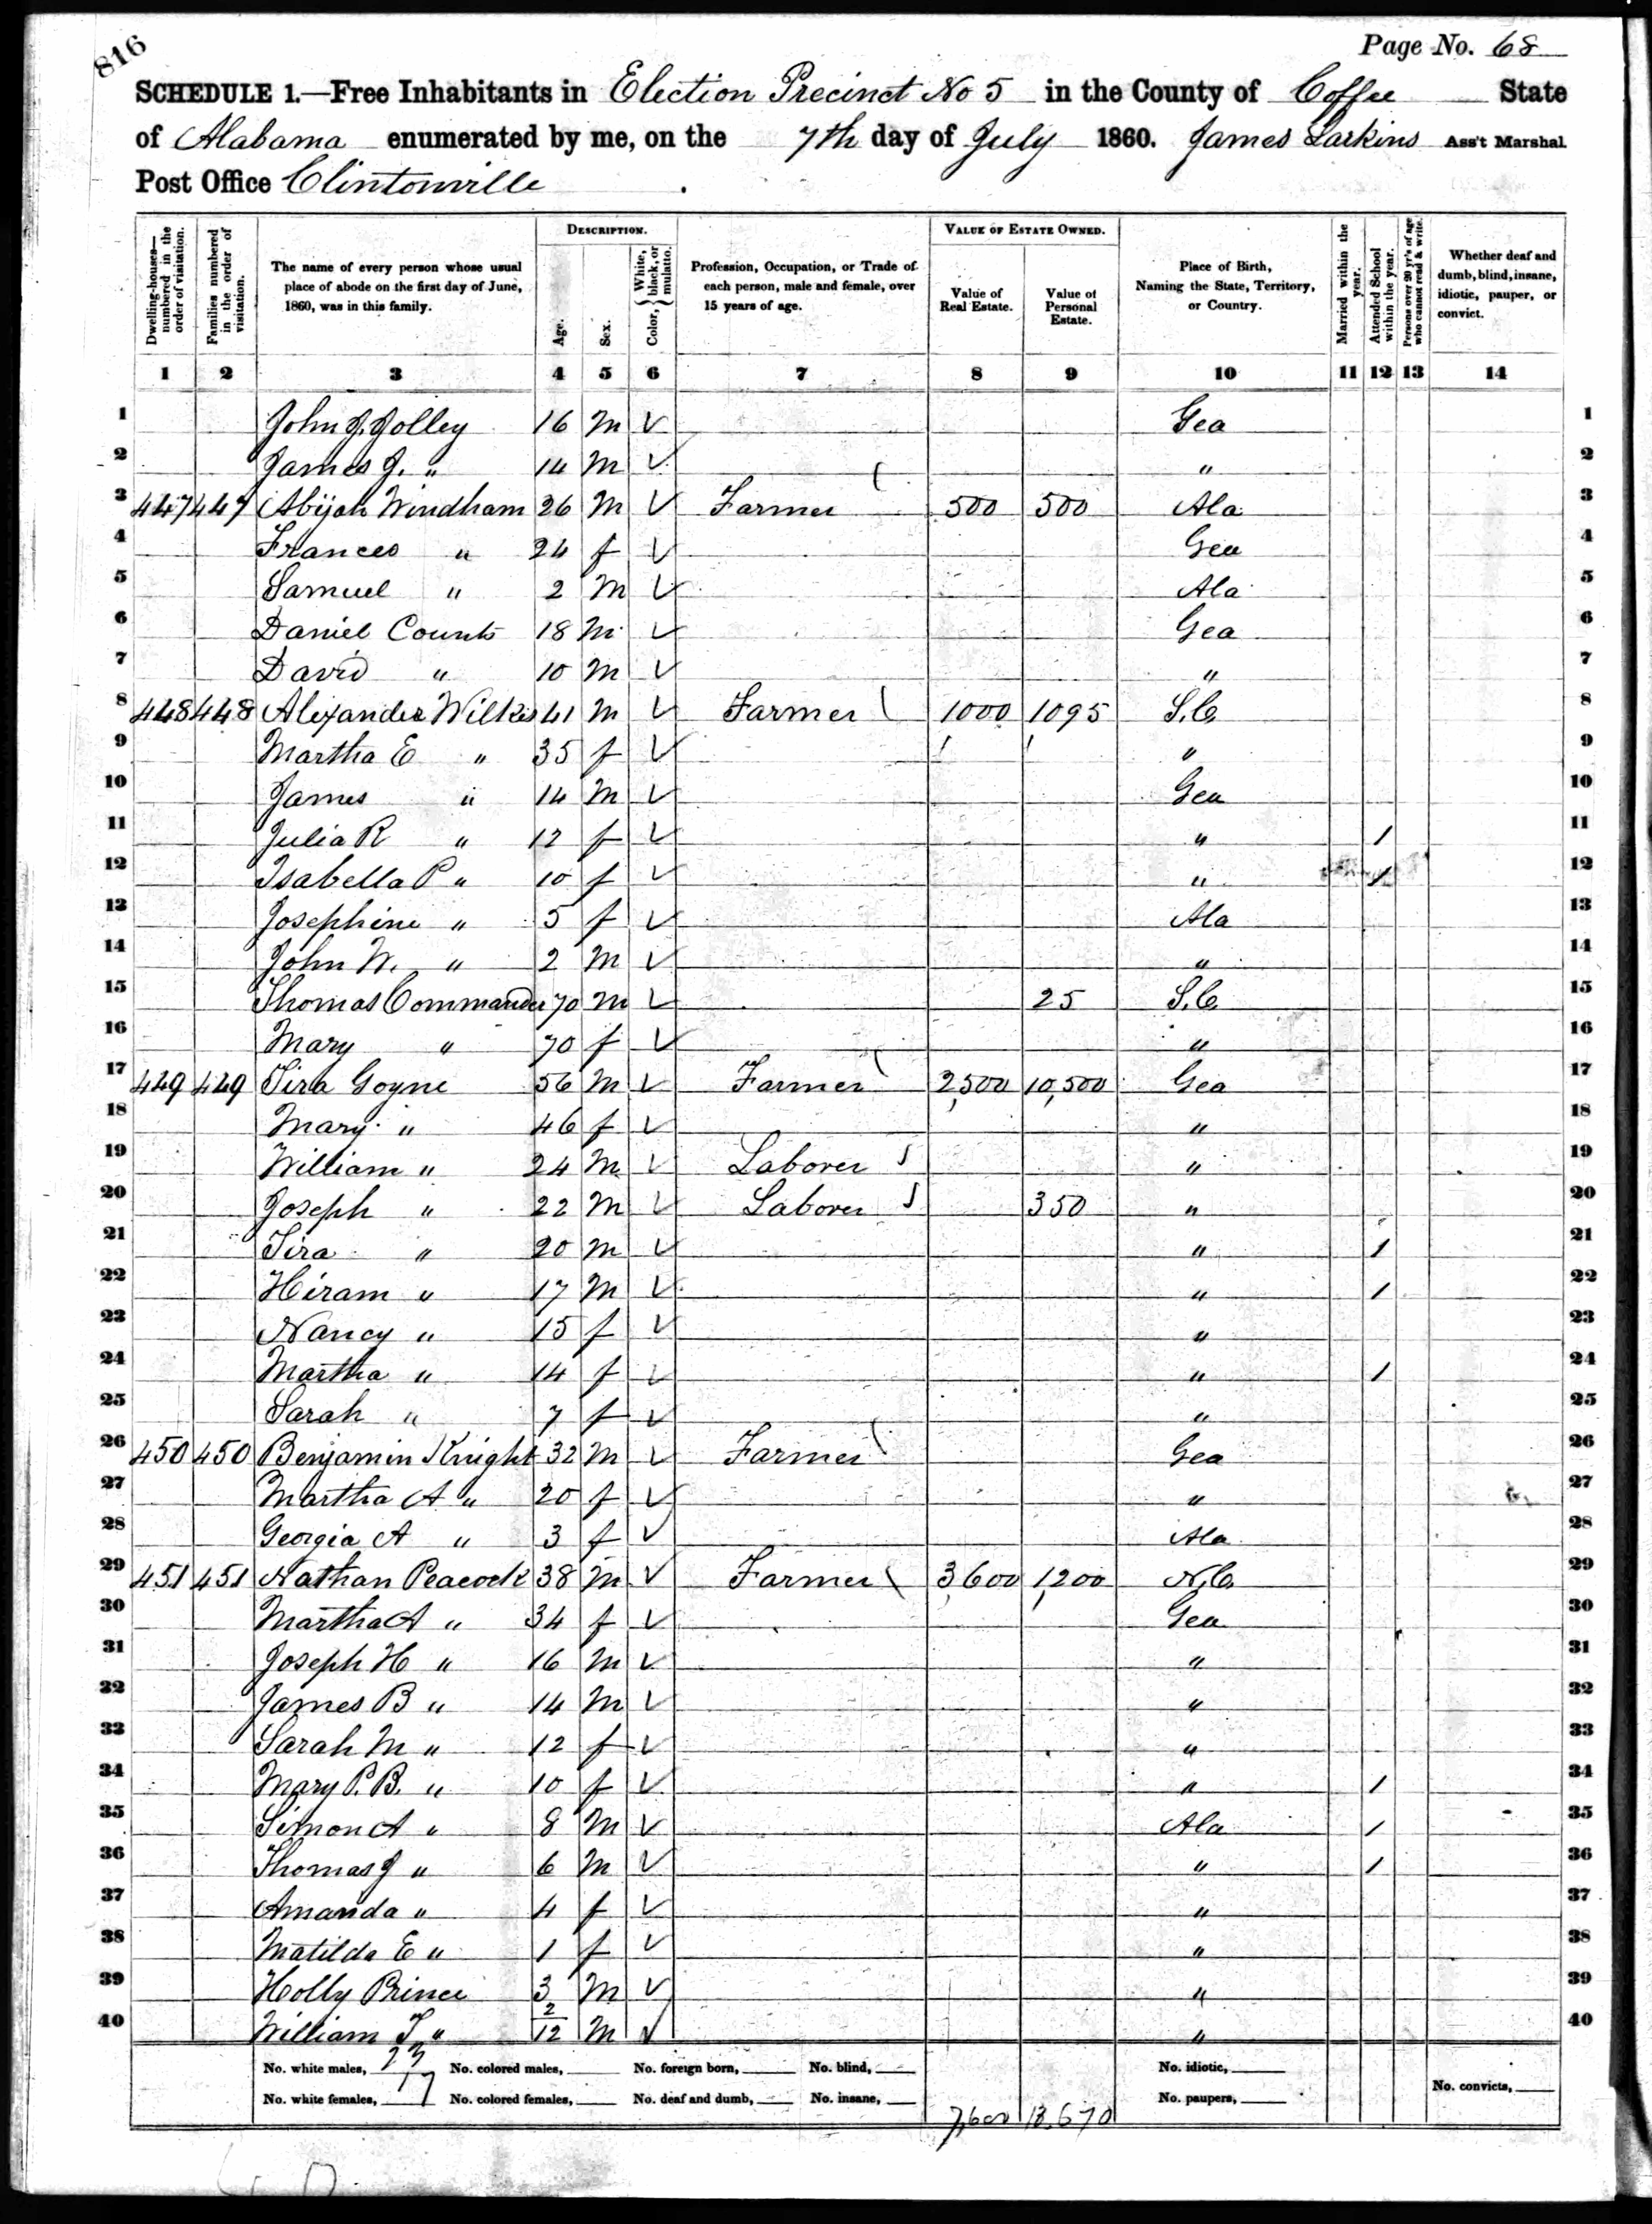 816
Page No. 68
SCHEDULE 1.—Free Inhabitants in Election Precinct No 5 in the County of Coffee State
of Alabama enumerated by me, on the 7th day of July 1860. James Larkins Ass't Marshal
Post Office Clintonville
Dwelling-houses—numbered in the order of visitation. Families numbered in the order of visitation. The name of every person whose usual place of abode on the first day of June, 1860, was in this family. DESCRIPTION. Age. Sex. Color, { White, black, or mulatto. Profession, Occupation, or Trade of each person, male and female, over 15 years of age. VALUE OF ESTATE OWNED. Value of Real Estate. Value of Personal Estate. Place of Birth, Naming the State, Territory, or Country. Married within the year. Attended School within the year. Persons over 20 y'rs of age who cannot read & write. Whether deaf and dumb, blind, insane, idiotic, pauper, or convict.
1 2 3 4 5 6 7 8 9 10 11 12 13 14
1 John J. Jolley 16 M √ Gea 1
2 James J. " 14 M √ " 2
3 447 447 Abijah Windham 26 M √ Farmer 500 500 Ala 3
4 Frances " 24 f √ Gea 4
5 Samuel " 2 M √ Ala 5
6 Daniel Counts 18 M √ Gea 6
7 David " 10 M √ " 7
8 448 448 Alexander Wilkes 41 M √ Farmer 1000 1095 S.C. 8
9 Martha E " 35 f √ " 9
10 James " 14 M √ Gea 10
11 Julia R " 12 f √ " / 11
12 Isabella P " 10 f √ " / 12
13 Josephine " 5 f √ Ala 13
14 John W. " 2 M √ " 14
15 Thomas Commander 70 M √ 25 S.C. 15
16 Mary " 70 f √ " 16
17 449 449 Tira Goyne 56 M √ Farmer 2,500 10,500 Gea 17
18 Mary " 46 f √ " 18
19 William " 24 M √ Laborer " 19
20 Joseph " 22 M √ Laborer 350 " 20
21 Tira " 20 M √ " / 21
22 Hiram " 17 M √ " / 22
23 Nancy " 15 f √ " 23
24 Martha " 14 f √ " / 24
25 Sarah " 7 f √ " 25
26 450 450 Benjamin Knight 32 M √ Farmer Gea 26
27 Martha A " 20 f √ " 27
28 Georgia A " 3 f √ Ala 28
29 451 451 Nathan Peacock 38 M √ Farmer 3,600 1,200 N.C. 29
30 Martha A " 34 f √ Gea 30
31 Joseph H " 16 M √ " 31
32 James B " 14 M √ " 32
33 Sarah M " 12 f √ " 33
34 Mary P. B. " 10 f √ " / 34
35 Simon A " 8 M √ Ala / 35
36 Thomas J " 6 M √ " / 36
37 Amanda " 4 f √ " 37
38 Matilda E " 1 f √ " 38
39 Holly Prince 3 M √ " 39
40 William T " 2/12 M √ " 40
No. white males, 23 No. colored males, No. foreign born, No. blind, No. idiotic,
No. white females, 17 No. colored females, No. deaf and dumb, No. insane, No. paupers, No. convicts,
7,600 13,670